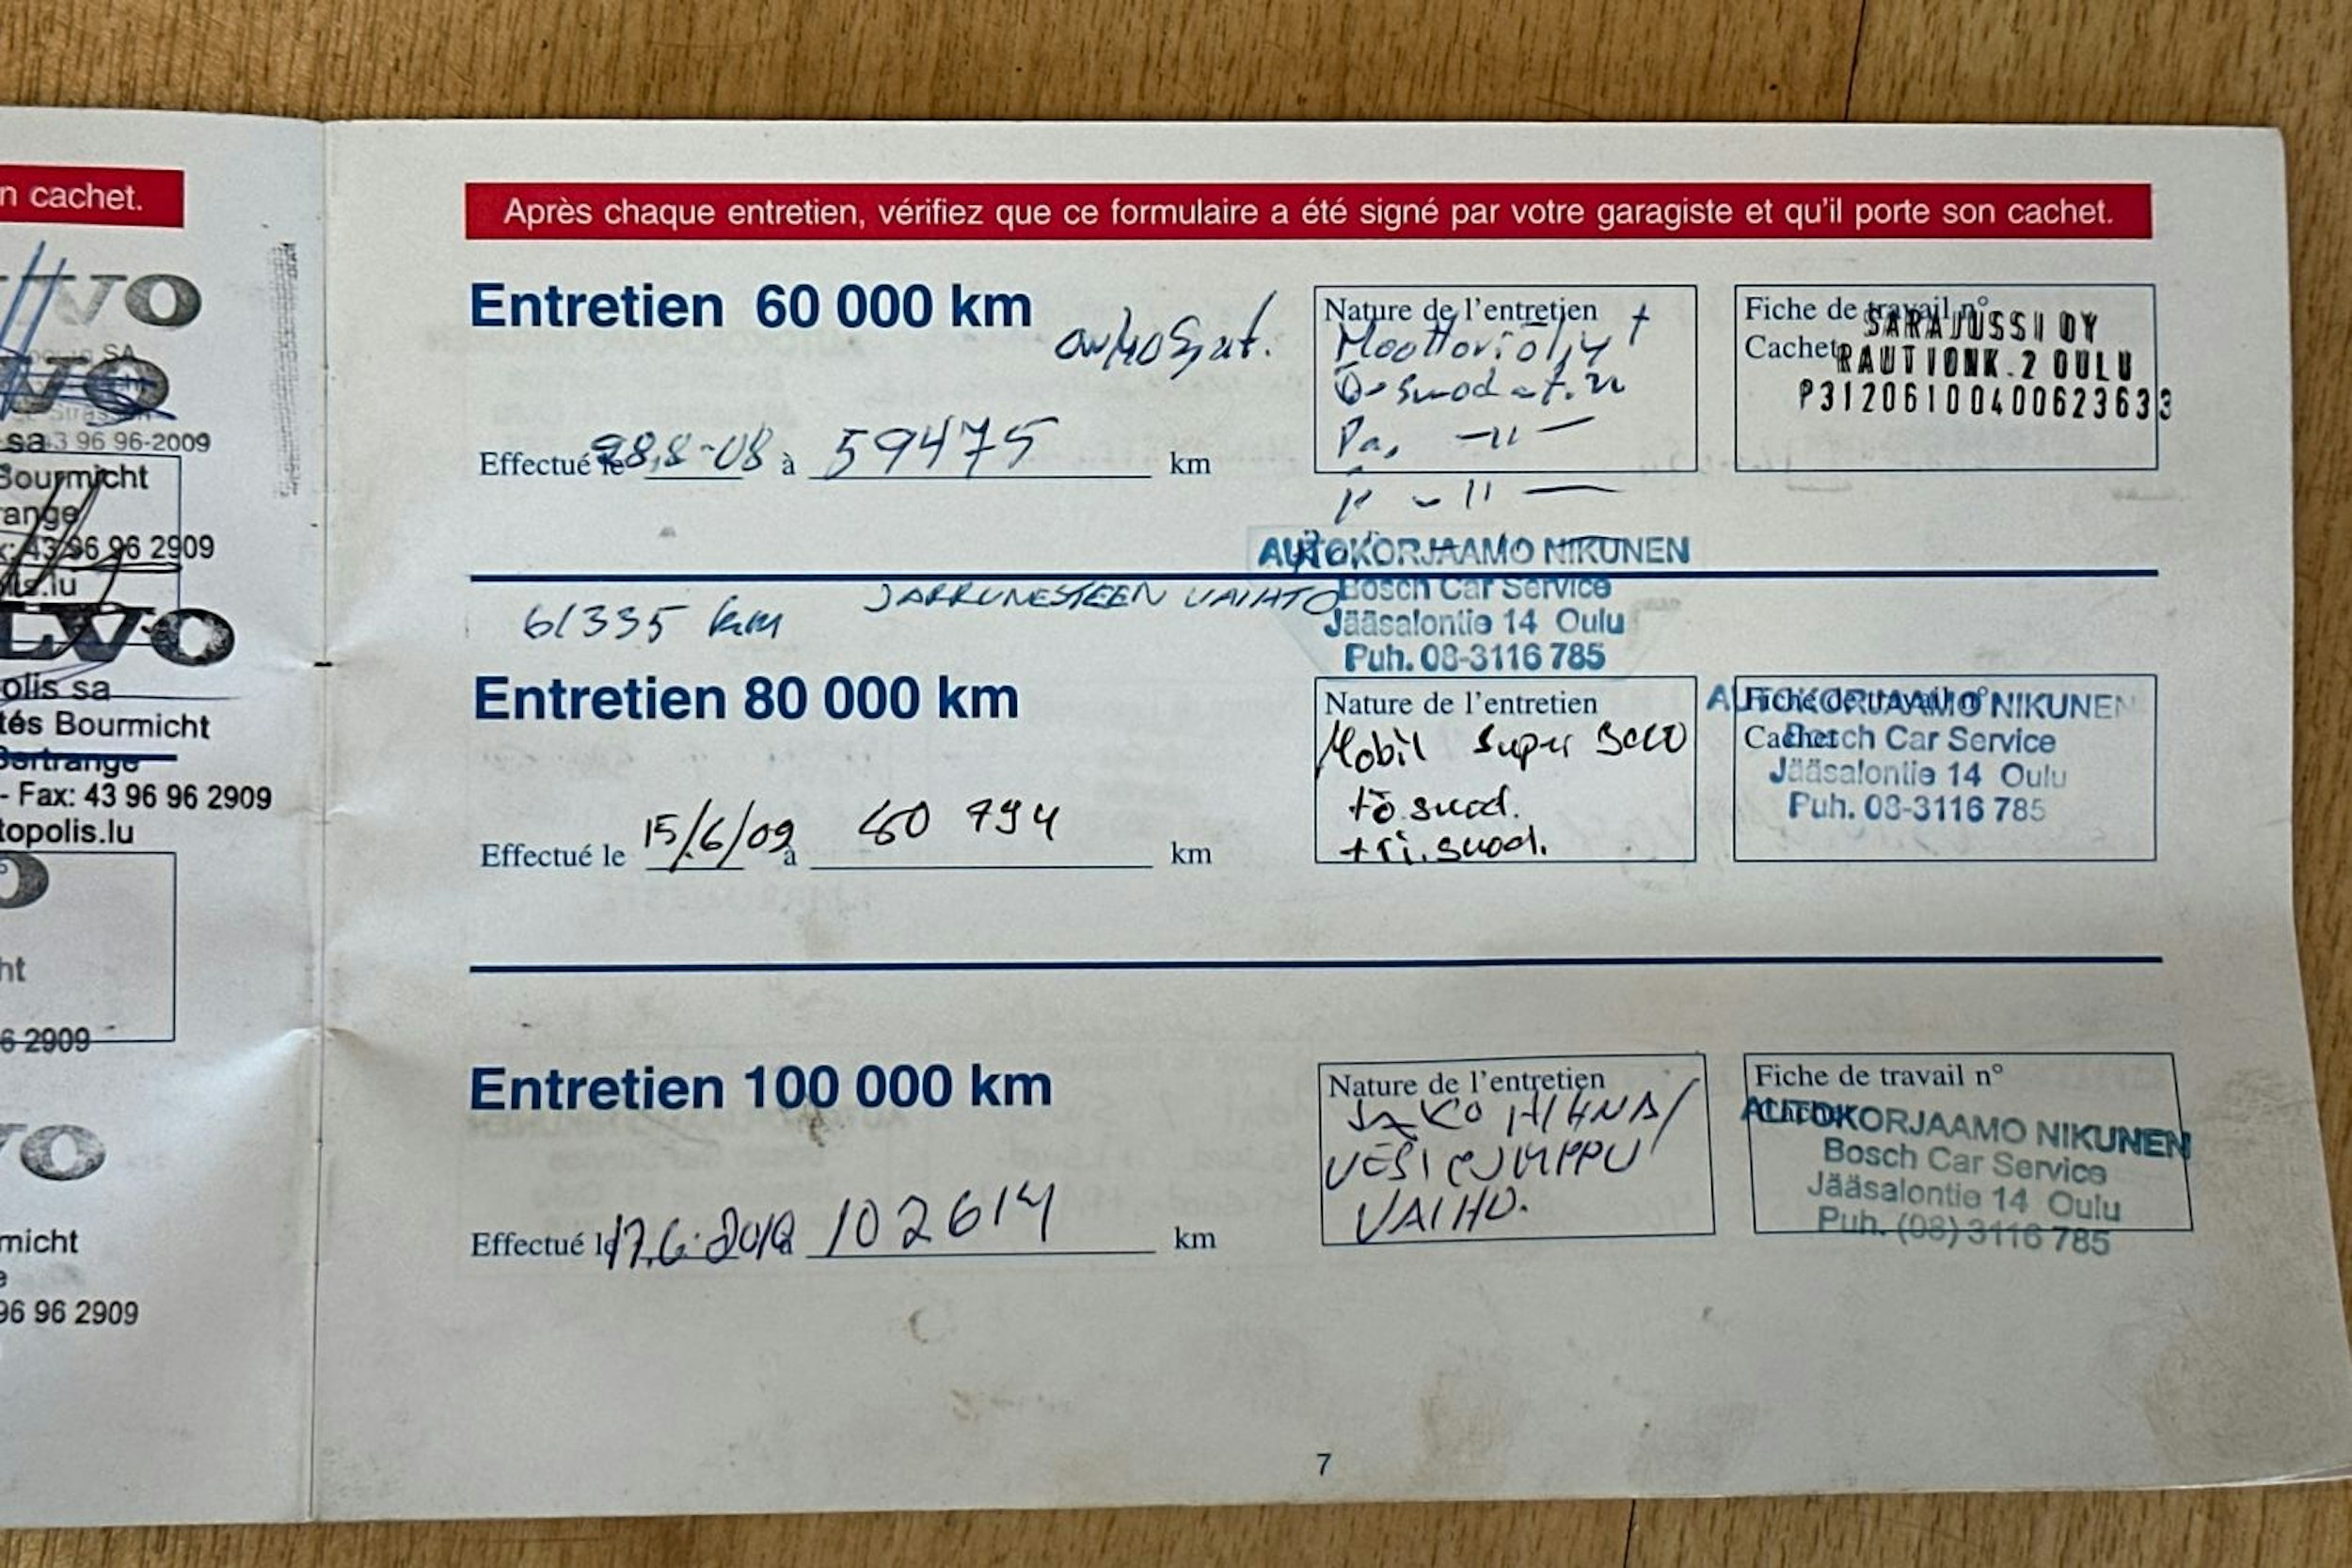 n cachet.
VO
VO
sa 43 96 96-2009
Bourmicht
range
x: 43 96 96 2909
lis.lu
LVO
olis sa
tés Bourmicht
Bertrange
- Fax: 43 96 96 2909
topolis.lu
O
ht
6 2909
VO
micht
e
96 96 2909
Après chaque entretien, vérifiez que ce formulaire a été signé par votre garagiste et qu'il porte son cachet.
Entretien 60 000 km
Effectué le 28.8-08 à 59475 km
Nature de l'entretien
Moottoriöljy +
Pa, -11-
11 - 11 -
Fiche de travail n°
Cachet
SARAJUSSI OY
RAUTIONK.2 OULU
P31206100400623633
61335 km JARRUNESTEEN VAIHTO
AUTOKORJAAMO NIKUNEN
Bosch Car Service
Jääsalontie 14 Oulu
Puh. 08-3116 785
Entretien 80 000 km
Effectué le 15/6/09 à 80 794 km
Nature de l'entretien
Mobil Super 3000
+ö.suod.
+ri.suod.
Fiche de travail n°
Cachet
AUTOKORJAAMO NIKUNEN
Bosch Car Service
Jääsalontie 14 Oulu
Puh. 08-3116 785
Entretien 100 000 km
Effectué le 17.6.2010 à 102614 km
Nature de l'entretien
JAKO HIHNA/
VESIPUMPPU
VAIHD.
Fiche de travail n°
Cachet
AUTOKORJAAMO NIKUNEN
Bosch Car Service
Jääsalontie 14 Oulu
Puh. (08) 3116 785
7